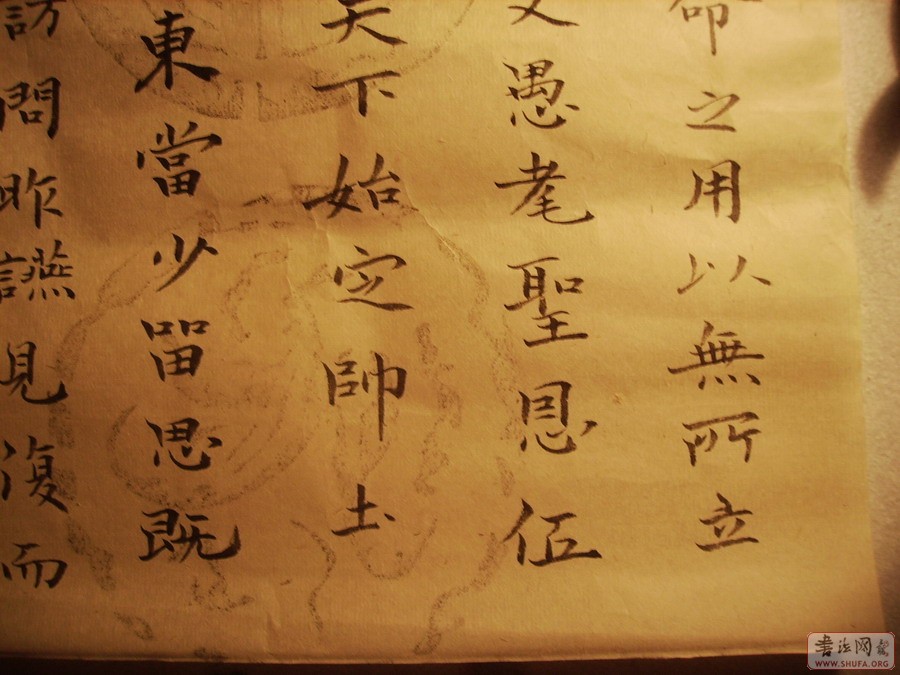 命之用以無所立
又愚耄聖恩低
天下始定帥土
東當少留思既
訪問昨讌見復而
書法网
WWW.SHUFA.ORG